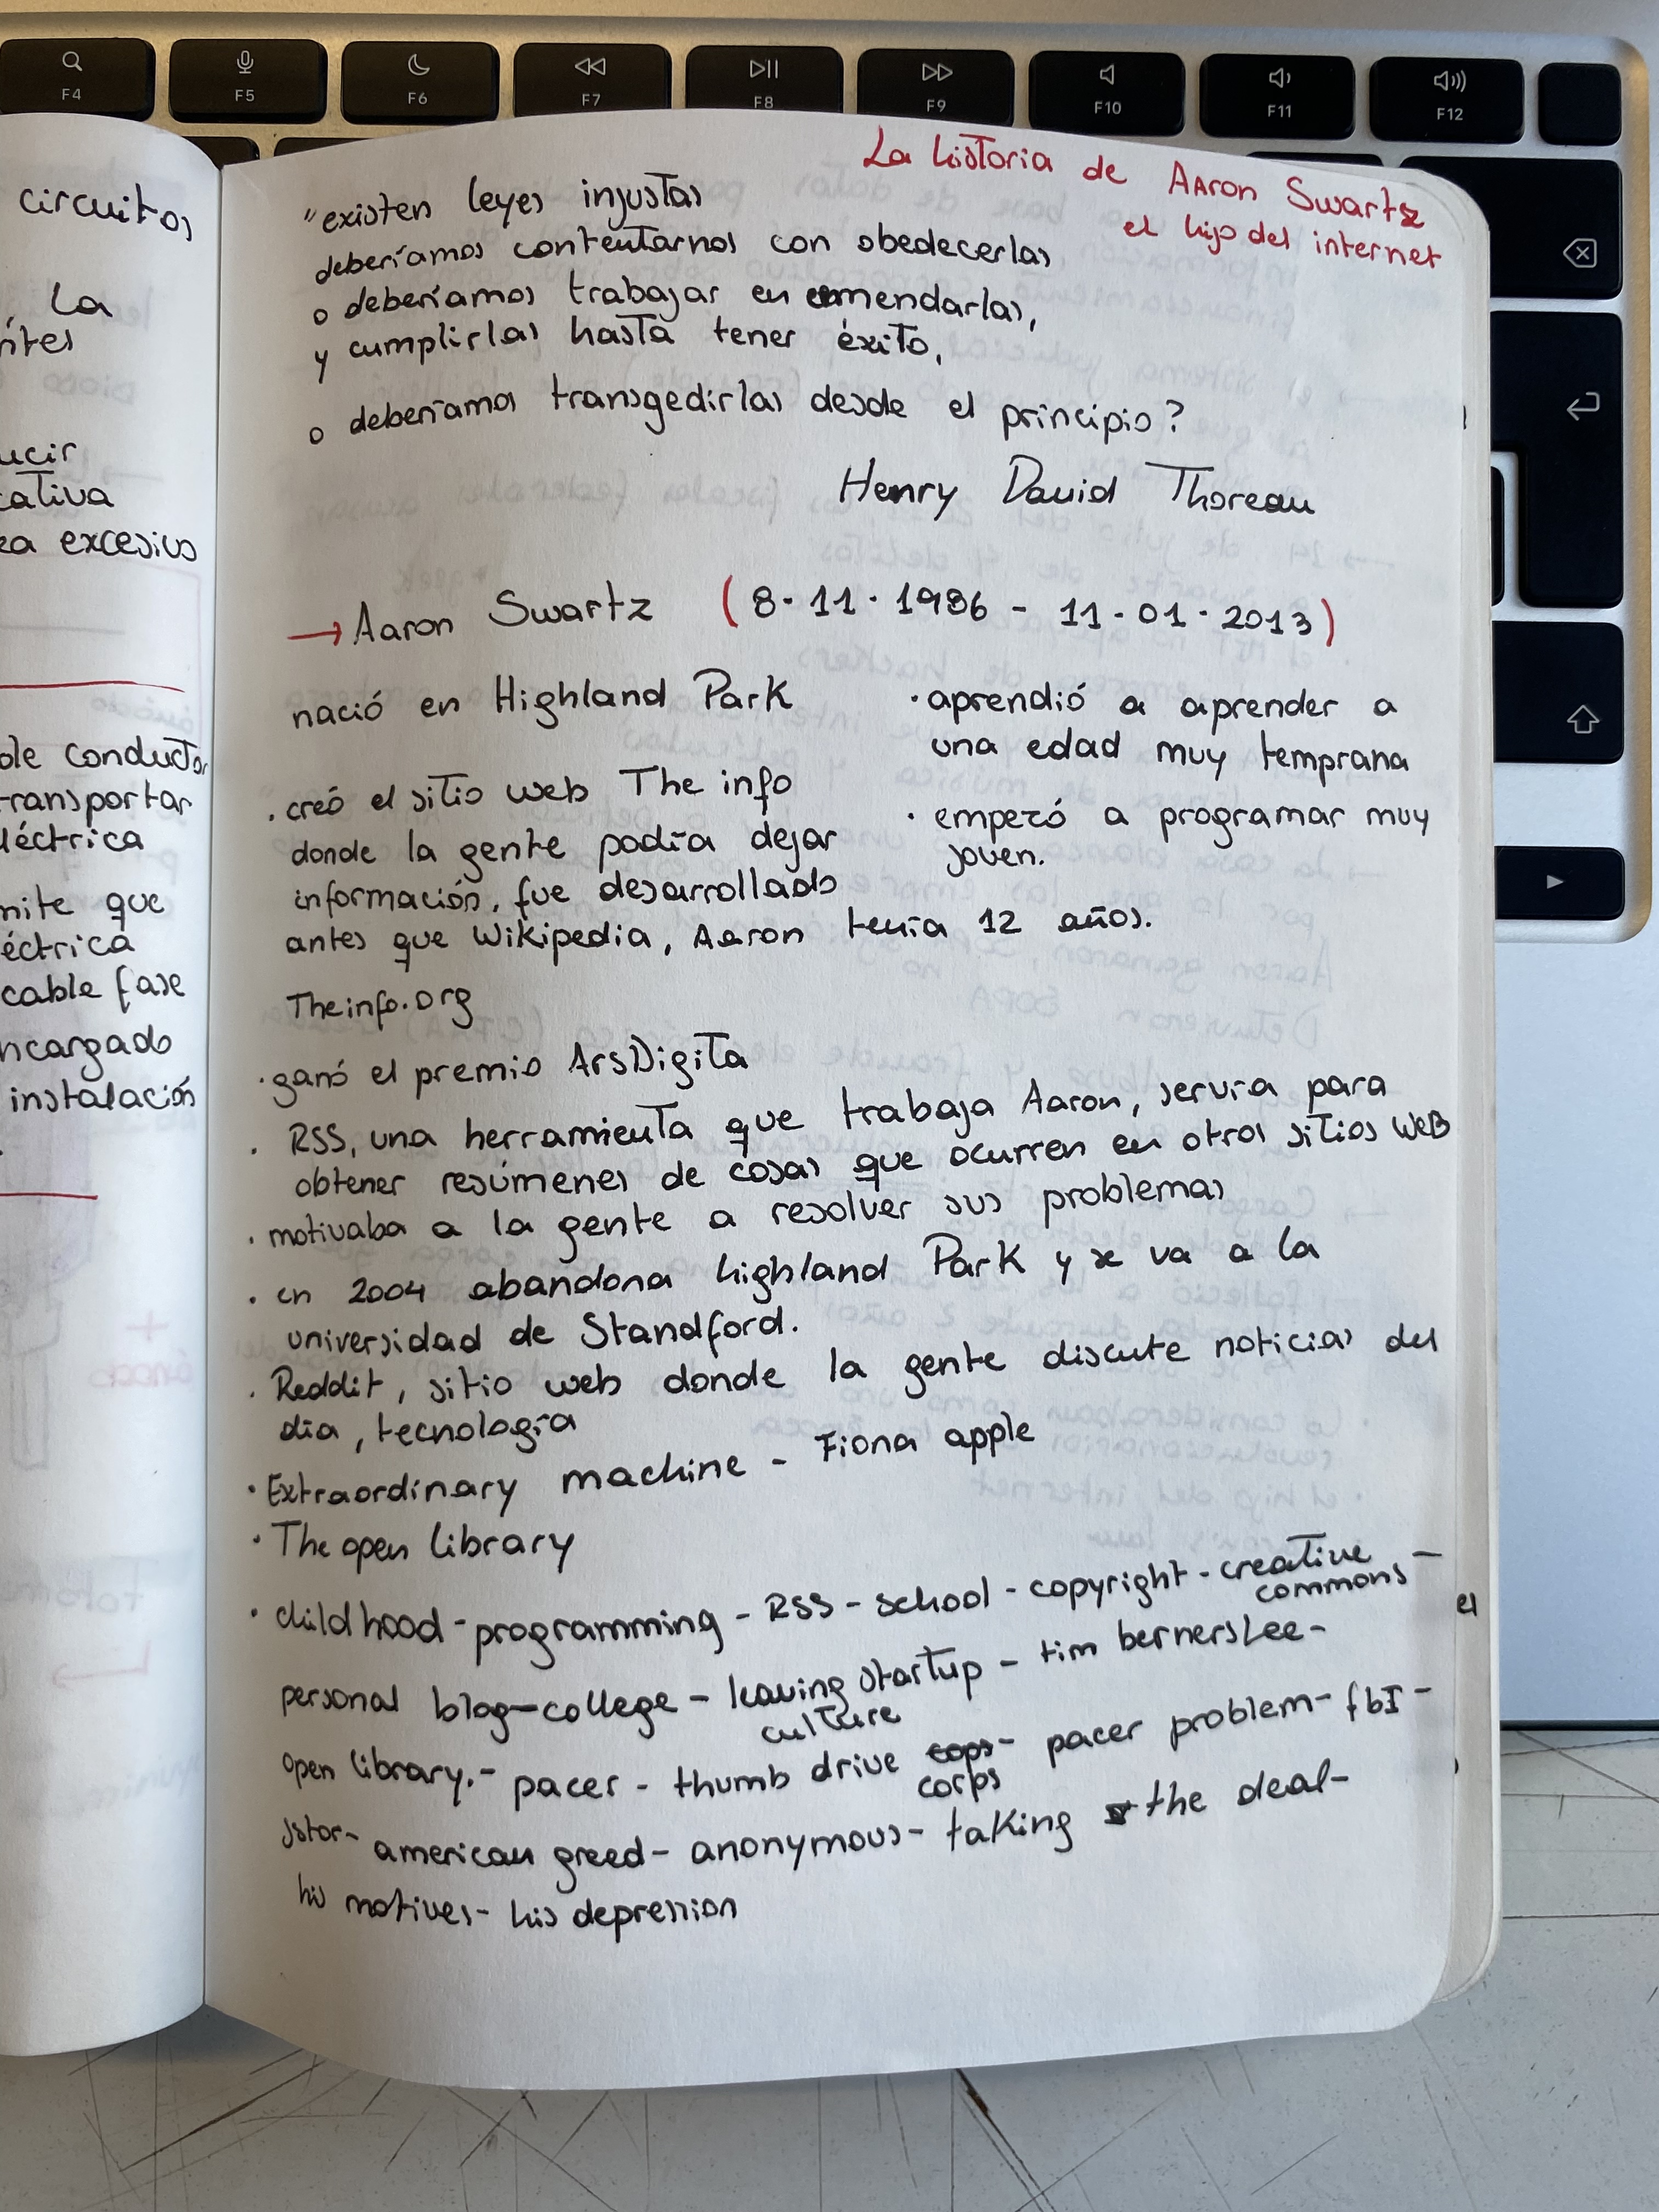 F4
F5
F6
F7
F8
F9
F10
F11
F12
circuitos
, La
ntes
ucir
cativa
ea excesivo
ole conductor
transportar
léctrica
mite que
éctrica
cable fase
ncargado
instalación
La historia de Aaron Swartz
el hijo del internet
"existen leyes injustas
deberíamos contentarnos con obedecerlas
o deberíamos trabajar en enmendarlas,
y cumplirlas hasta tener éxito,
o deberíamos transgedirlas desde el principio?
Henry David Thoreau
→ Aaron Swartz (8·11·1986 - 11-01·2013)
nació en Highland Park
· aprendió a aprender a
una edad muy temprana
· empezó a programar muy
joven.
· creó el sitio web The info
donde la gente podía dejar
información, fue desarrollado
antes que Wikipedia, Aaron tenía 12 años.
Theinfo.org
· ganó el premio ArsDigita
· RSS, una herramienta que trabaja Aaron, servía para
obtener resúmenes de cosas que ocurren en otros sitios WEB
· motivaba a la gente a resolver sus problemas
· en 2004 abandona highland Park y se va a la
universidad de Standford.
· Reddit, sitio web donde la gente discute noticias del
día, tecnología
· Extraordinary machine - Fiona apple
· The open library
· childhood - programming - RSS - school - copyright - creative commons -
personal blog - college - leaving startup culture - tim bernersLee -
open library. - pacer - thumb drive corps - pacer problem - fbI -
jstor - american greed - anonymous - taking the deal -
his motives - his depression
el